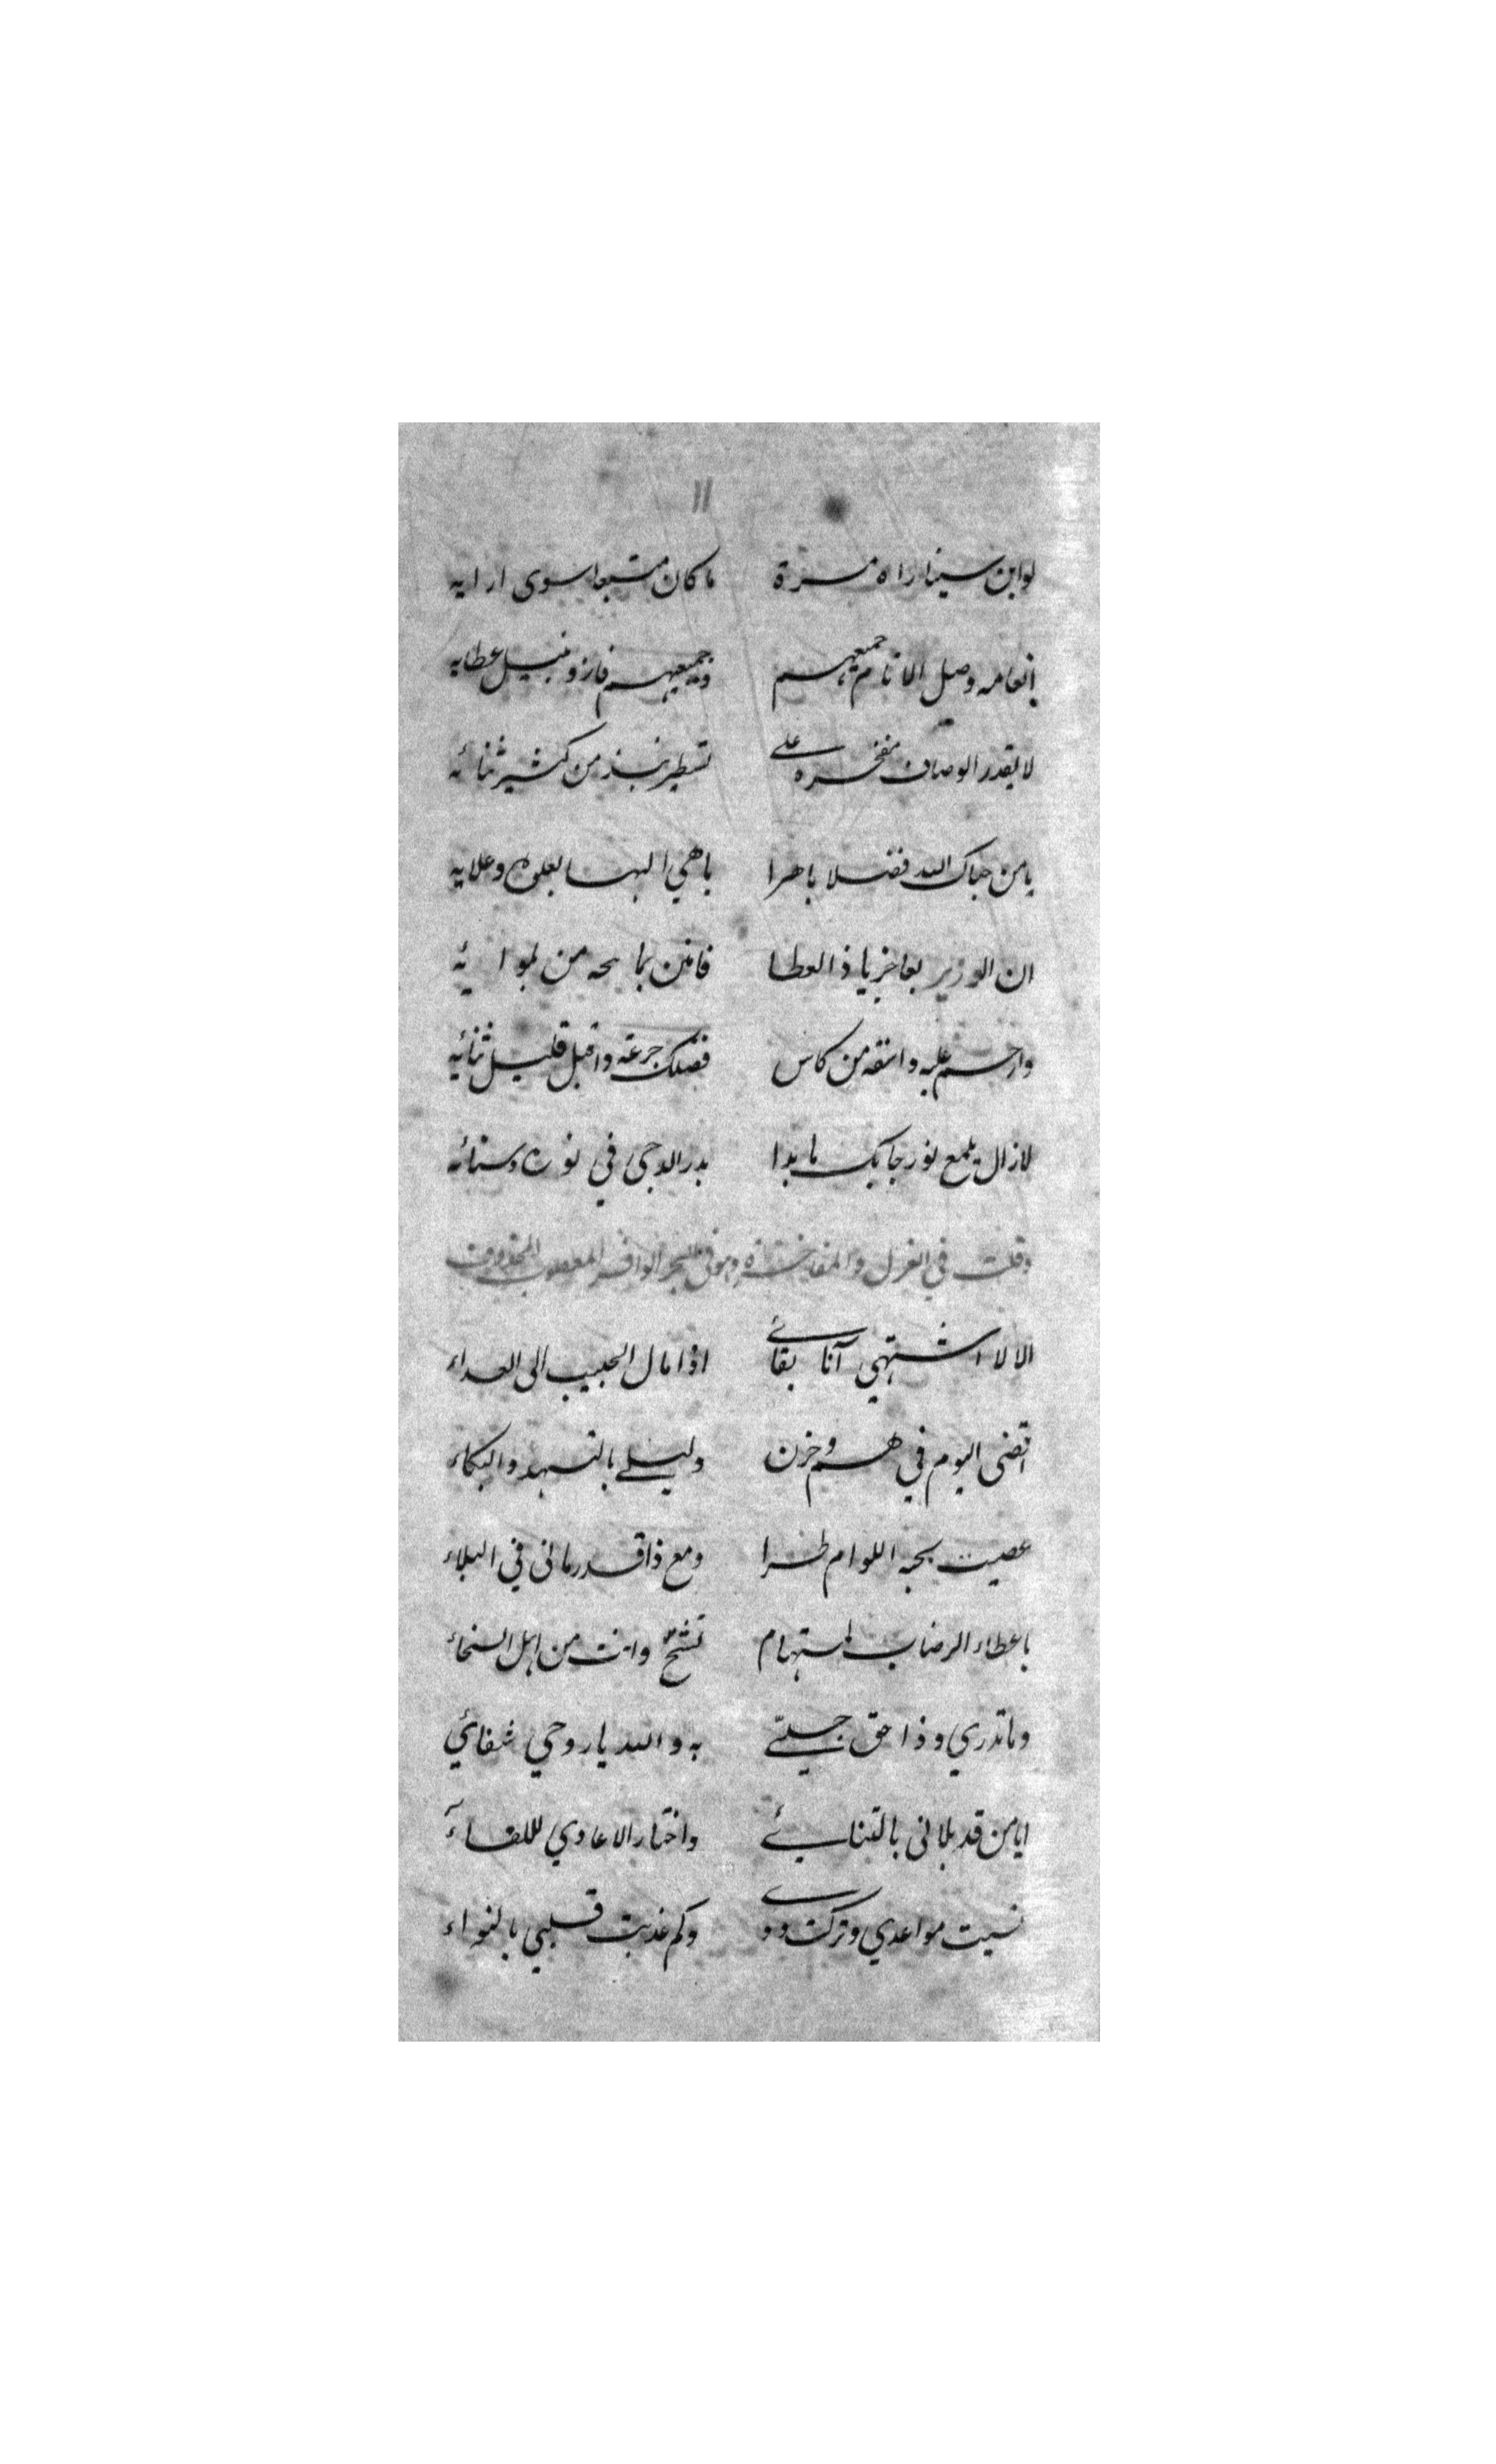 ١١
لو ابن سينا راه مرة ما كان متبعا سوى ارايه
انعامه وصل الانام جميعهم وجميعهم فازو بنيل عطايه
لا يقدر الوصاف مفخره على تسطير نبذ من كثير ثنائه
يا من حباك الله فضلا باهرا باهي البها بعلوه وعلايه
ان الوزير بعاخر يا ذا العطا فامنن بما من لوائه
وارحم عليه واسقه من كاس فضلك جرعة واقبل قليل ثنائيه
لا زال يلمع نور جابك ما بدا بدر الدجى في نوره وسنائه
وقلت في الغزل والمفاخرة وهو في البحر الوافر المعصوب المخذوف
الا لا اشتهي آنا بقائے اذا مال الحبيب الى العداء
اقضى اليوم في هم وحزن وليلے بالتسهد والبكاء
عصيت بحبه اللوام طرا ومع ذا قد رمانى في البلاء
باعطاء الرضاب لمستهام تشحّ وانت من اهل السخاء
وما تدري وذا حق جليّے به والله يا روحي شفائي
ايا من قد بلانى بالتنائے واختار الاعادي للقاء
نسيت مواعدي وتركت ودے وكم عذبت قلبي بالنواء